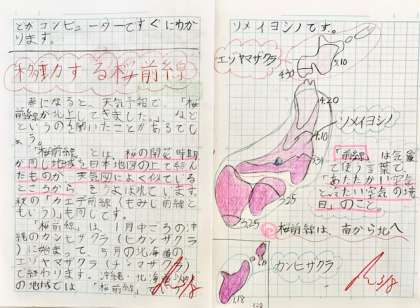 とかコンピューターですぐにわか
ります。
移動する桜前線
春になると、天気予報で、「桜
前線が北上してきました。」など
というのを聞いたことがあるでし
ょう。
「桜前線」とは、桜の開花時期
が同じ地域を日本地図の上で結ん
だものが、天気図によく似ている
ところから、そうよばれています。
秋の「カエデ前線(もみじ前線と
もいう)」も同じです。
「桜前線」は、1月中ごろの沖
縄のカンヒザクラ(ヒカンザクラ)
に始まって、5月の北海道の
エゾヤマザクラ(チシマザクラ)
で終わります。沖縄・北海道以外
の地域では、「桜前線」
ソメイヨシノです。
エゾヤマザクラ
5.10
4.30
4.20
ソメイヨシノ
4.10
3.31
3.25
3.25
「前線」は気象
で使う言葉で、
「あたたかい空気
とつめたい空気の境
目」のこと。
桜前線は、南から北へ
カンヒザクラ
1.18